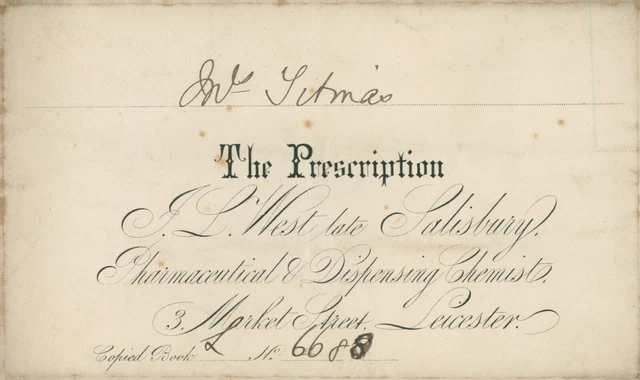 Mrs Titmas
The Prescription
J. L. West late Salisbury.
Pharmaceutical & Dispensing Chemist.
3. Market Street. Leicester.
Copied Book L No. 6088